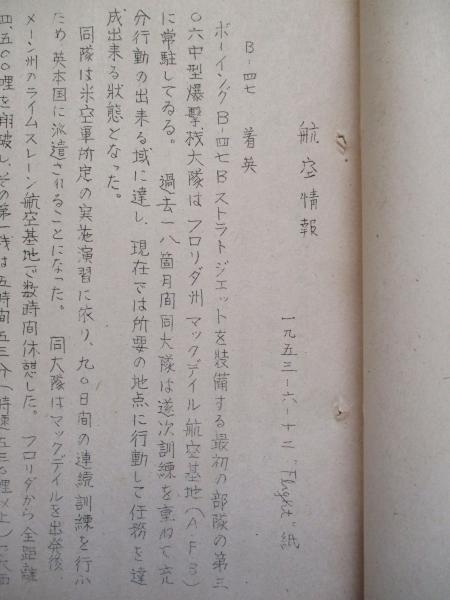 航空情報
一九五三－六－十二 "Flight" 紙
B－四七 着英
ボーイングB－四七Bストラトジェットを装備する最初の部隊の第三
〇六中型爆撃機大隊はフロリダ州マックデイル航空基地(A.F.B)
に常駐してゐる。 過去一八箇月間同大隊は逐次訓練を重ねて充
分行動の出来る域に達し、現在では所要の地点に行動して任務を達
成出来る状態となった。
同隊は米空軍所定の実施演習に依り、九〇日間の連続訓練を行ふ
ため英本国に派遣されることになった。 同大隊はマックデイルを出発後
メーン州のライムストーン航空基地で数時間休憩した。 フロリダから全距離
四,五〇〇哩を翔破し、その第一機は五時間五三分(時速五三〇哩以上)